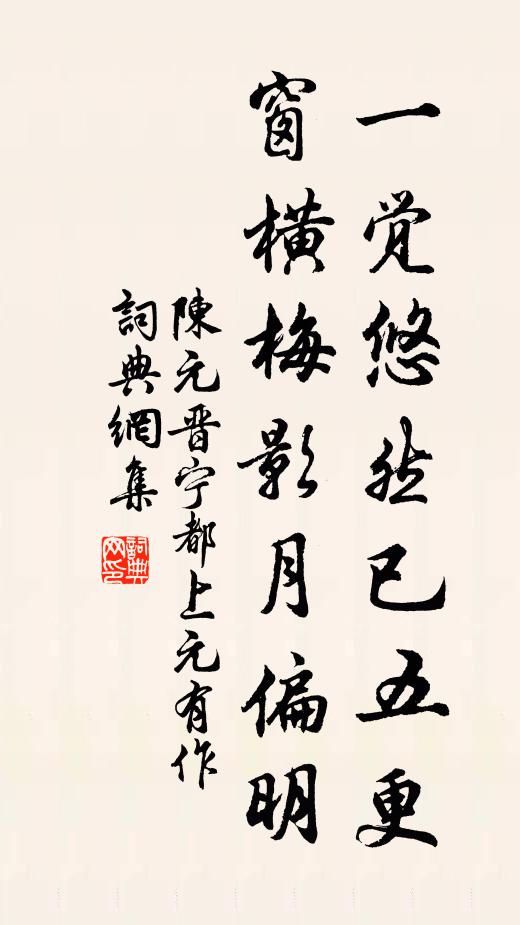 一覺悠然已五更
窗橫梅影月偏明
陳元晋宁都上元有作
詞典網集
詞典网印